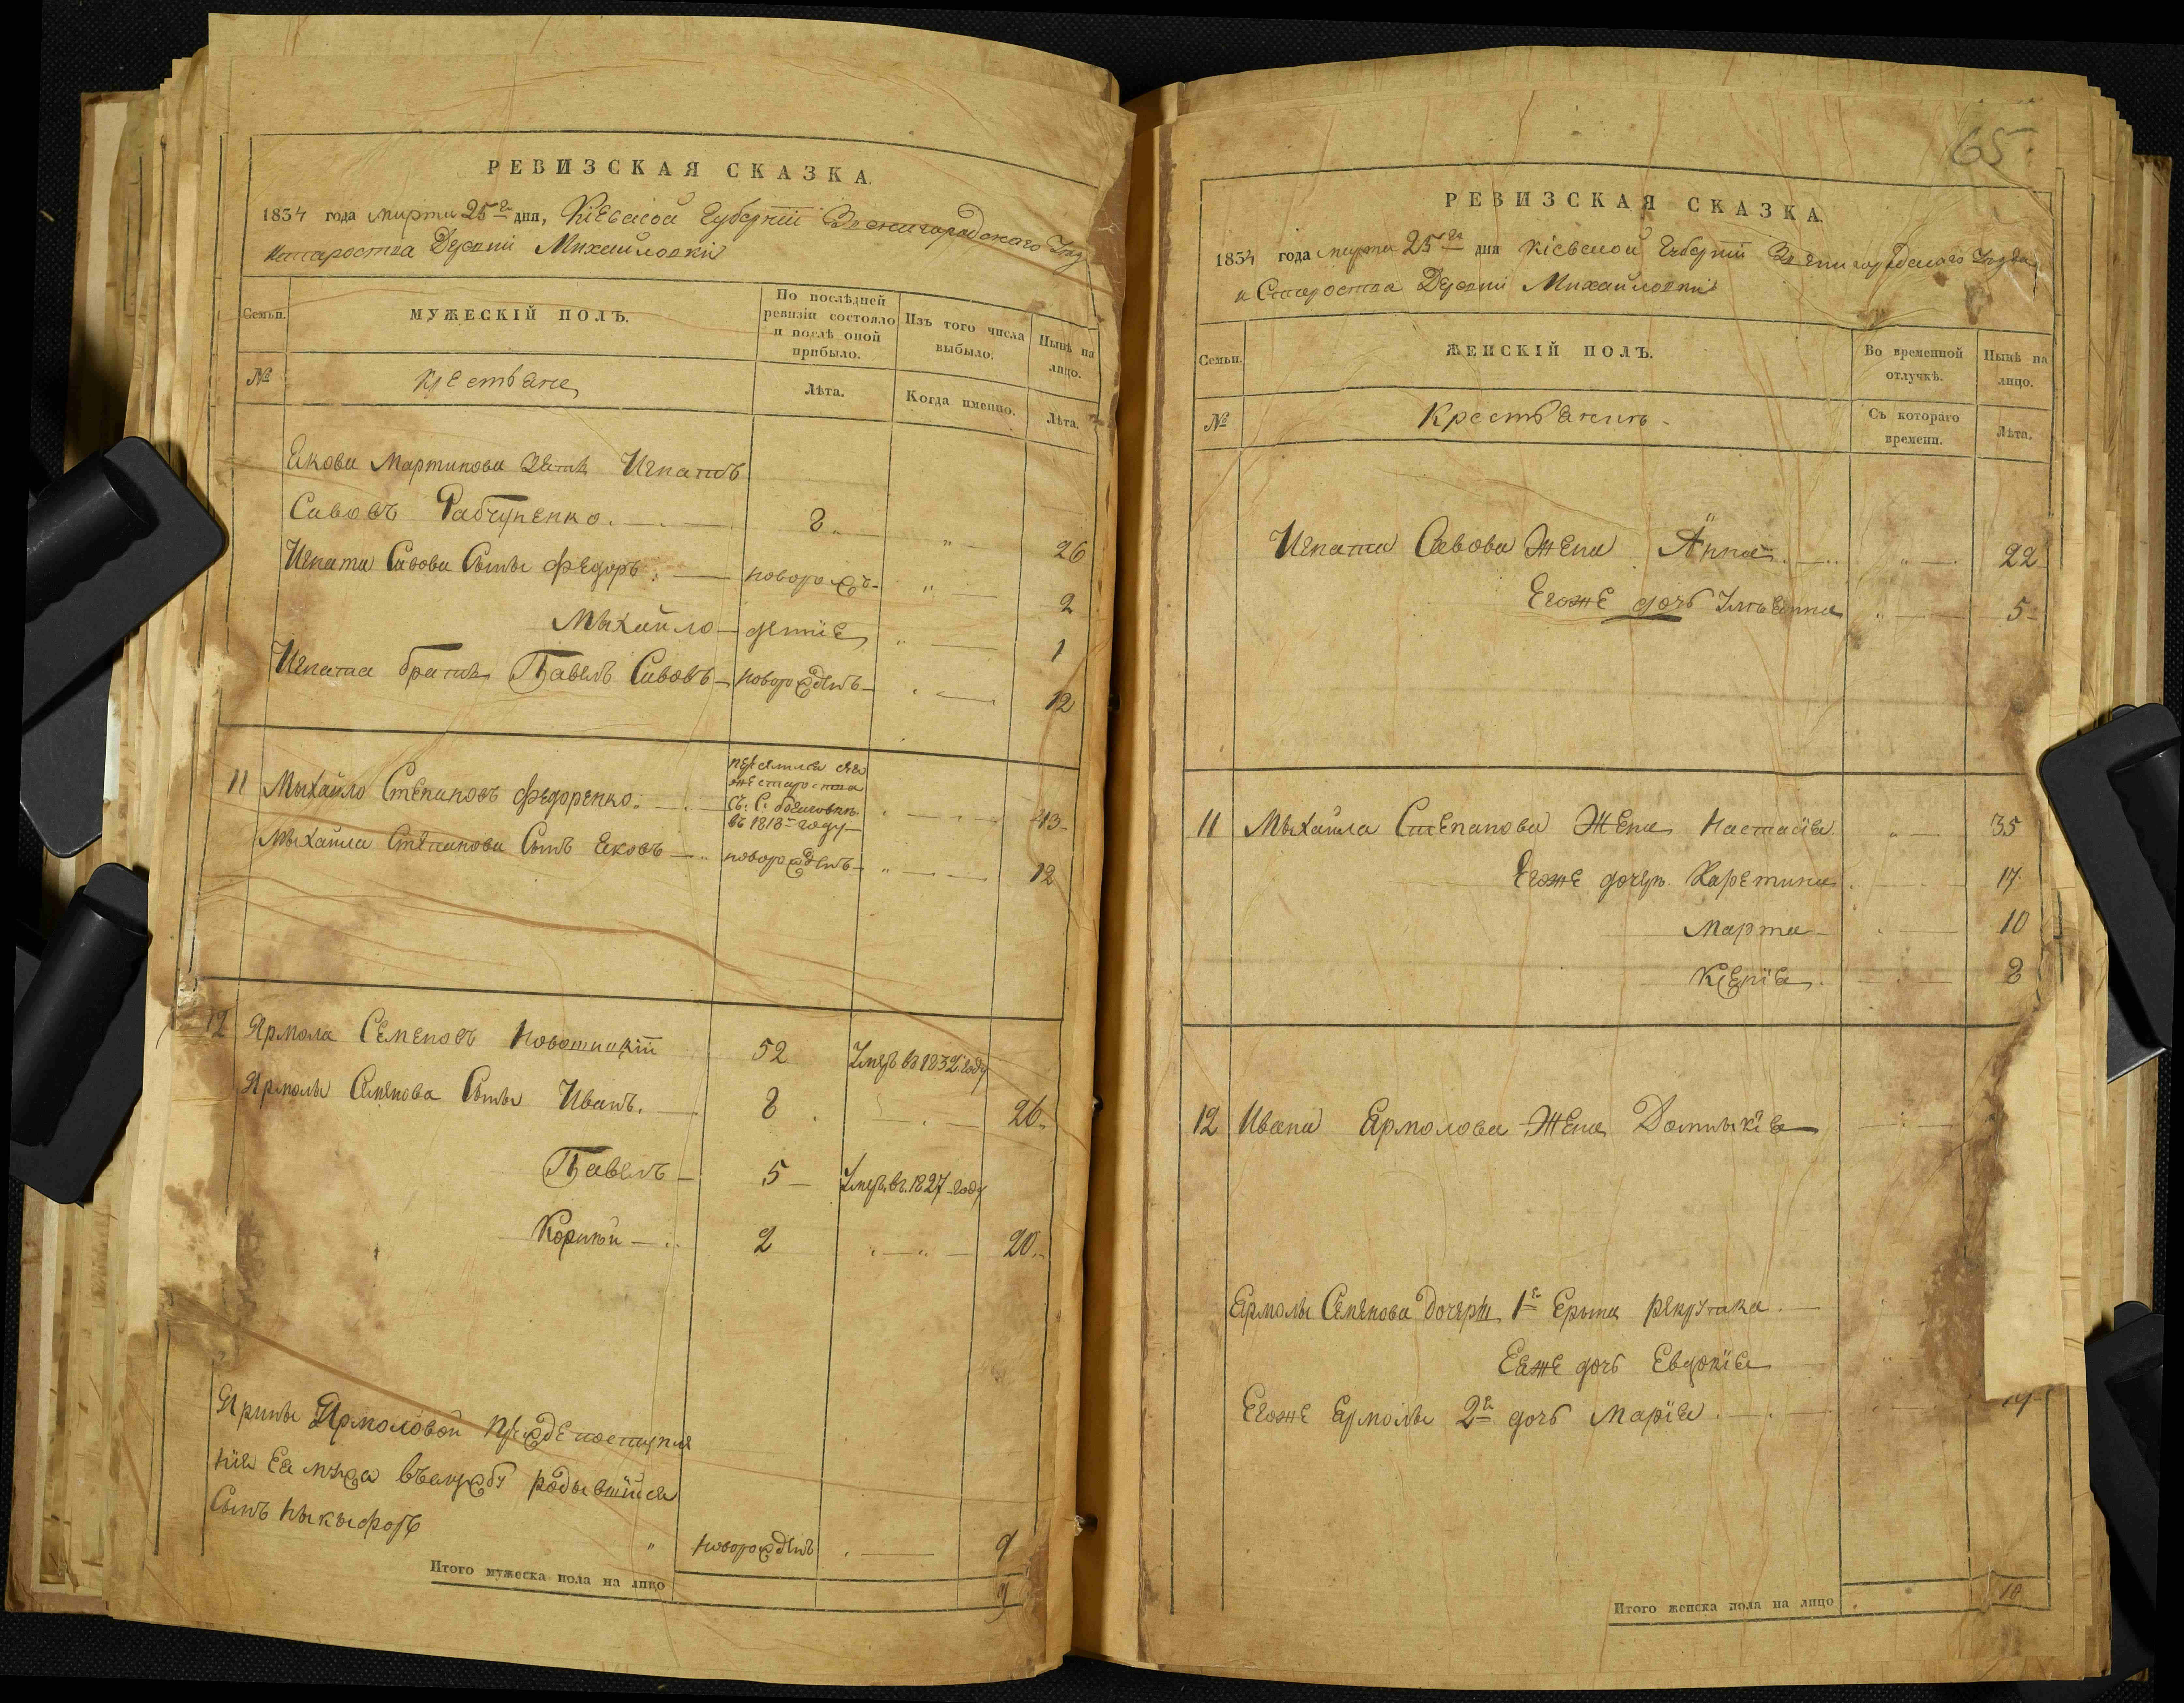 РЕВИЗСКАЯ СКАЗКА.
1834 года марта 25го дня, Кіевской Губерніи Звенигородского
Староства Деревни Михайловки
Семьи.
МУЖЕСКІЙ ПОЛЪ.
По послѣдней ревизіи состояло и послѣ оной прибыло.
Изъ того числа выбыло.
Нынѣ на лицо.
№
Крестьяне
Лѣта.
Когда именно.
Лѣта.
Якова Мартинова зять Игнатъ
Савовъ Рабчуненко. 8 " 26
Игната Савова Сыны Федоръ новорож- " 2
Мыхайло деніе " 1
Игната братъ Павелъ Савовъ новорожденъ " 12
11 Мыхайло Степановъ Федоренко староства съ С. въ 1818 году " 43
Мыхайла Степанова Сынъ Яковъ новорожденъ " 12
12 Ярмола Семеновъ 52 Умеръ въ 1832 году
Ярмолы Семенова Сыны Иванъ. 8 26
Павелъ 5 Умеръ въ 1827 году
Корнѣй 2 " 20
Ярины Ярмоловой преждепоступле
нія Ея мужа въ службу родывшійся
Сынъ Ныкыфоръ " новорожденъ 9
Итого мужеска пола на лицо 9
65
РЕВИЗСКАЯ СКАЗКА.
1834 года марта 25го дня Кіевской Губерніи Звенигородского Уезда
и Староства Деревни Михайловки
Семьи.
ЖЕНСКІЙ ПОЛЪ.
Во временной отлучкѣ.
Нынѣ на лицо.
№
Крестьянинъ
Съ котораго времени.
Лѣта.
Игната Савова Жена Анна " 22
Егоже дочь Ульянна " 5
11 Мыхайла Степанова Жена Настасія " 35
Егоже дочери Каретина 17
Марта 10
Ксенія 8
12 Ивана Ярмолова Жена Домныкія
Ермолы Семенова Дочери 1я Ерына рекрутка
Еяже дочь Евдокія
Егоже Ермолы 2я дочь Марія
Итого женска пола на лицо 10